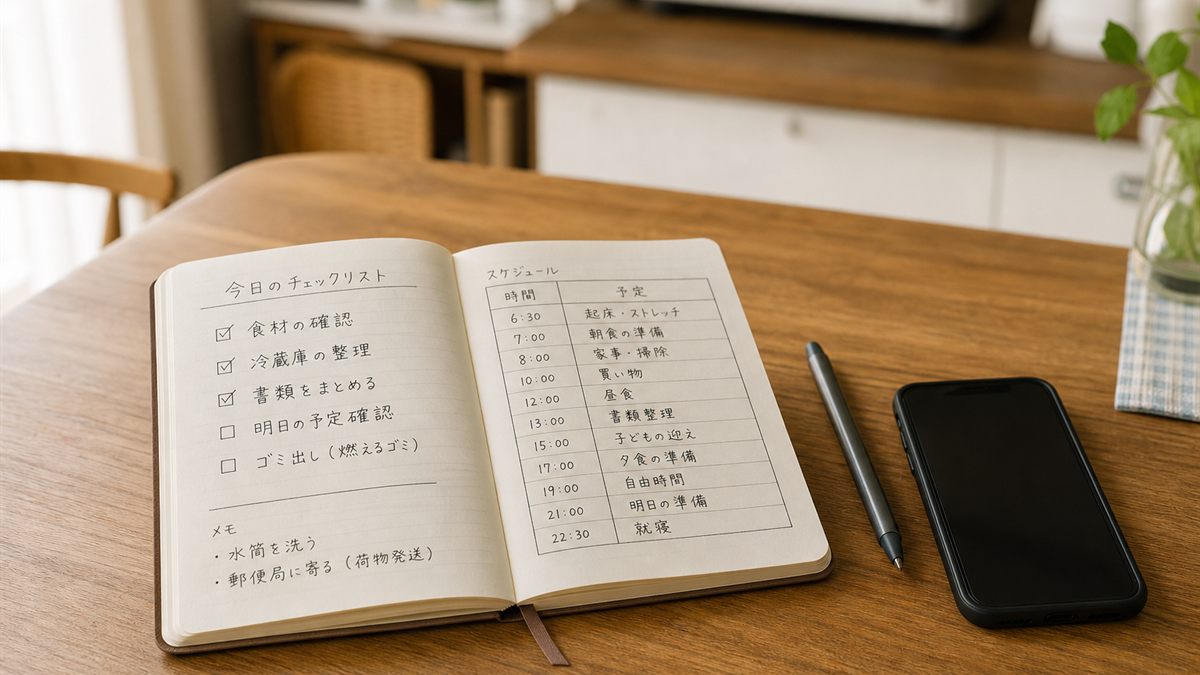 今日のチェックリスト
☑ 食材の確認
☑ 冷蔵庫の整理
☑ 書類をまとめる
☐ 明日の予定確認
☐ ゴミ出し(燃えるゴミ)
メモ
・水筒を洗う
・郵便局に寄る(荷物発送)
スケジュール
時間 予定
6:30 起床・ストレッチ
7:00 朝食の準備
8:00 家事・掃除
10:00 買い物
12:00 昼食
13:00 書類整理
15:00 子どもの迎え
17:00 夕食の準備
19:00 自由時間
21:00 明日の準備
22:30 就寝